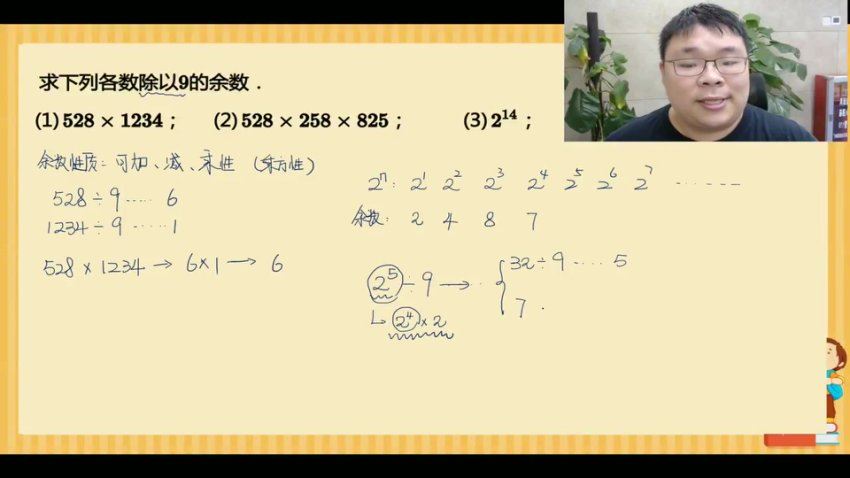 求下列各数除以9的余数．
(1) 528 × 1234； (2) 528 × 258 × 825； (3) 2¹⁴；
余数性质：可加、减、乘性（乘方性）
528÷9……6
1234÷9……1
528×1234→6×1→6
2ⁿ：2¹ 2² 2³ 2⁴ 2⁵ 2⁶ 2⁷ ……
余数：2 4 8 7
2⁵÷9→
32÷9……5
7·
2⁴×2